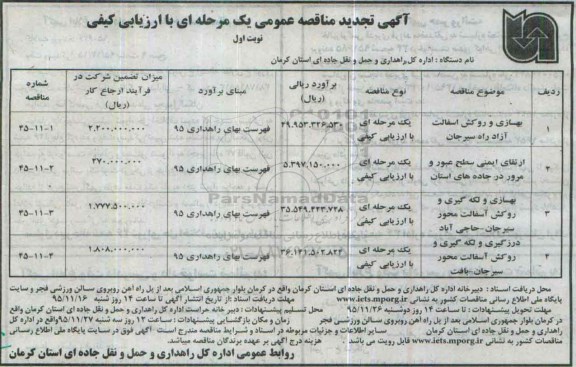 آگهی تجدید مناقصه عمومی یک مرحله ای با ارزیابی کیفی
نوبت اول
نام دستگاه : اداره کل راهداری و حمل و نقل جاده ای استان کرمان
ردیف موضوع مناقصه نوع مناقصه برآورد ریالی (ریال) مبنای برآورد میزان تضمین شرکت در فرآیند ارجاع کار (ریال) شماره مناقصه
۱ بهسازی و روکش اسفالت آزاد راه سیرجان یک مرحله ای با ارزیابی کیفی فهرست بهای راهداری ۹۵ ۲,۲۰۰,۰۰۰,۰۰۰ ۳۵-۱۱-۱
۲ ارتقای ایمنی سطح عبور و مرور در جاده های استان یک مرحله ای با ارزیابی کیفی ۵,۳۹۷,۱۵۰,۰۰۰ فهرست بهای راهداری ۹۵ ۲۷۰,۰۰۰,۰۰۰ ۴۵-۱۱-۲
۳ بهسازی و لکه گیری و روکش آسفالت محور سیرجان-حاجی آباد یک مرحله ای با ارزیابی کیفی ۳۵,۵۴۹,۲۴۳,۷۲۸ فهرست بهای راهداری ۹۵ ۱,۷۷۷,۵۰۰,۰۰۰ ۴۵-۱۱-۳
۴ درزگیری و لکه گیری و روکش آسفالت محور سیرجان-بافت یک مرحله ای با ارزیابی کیفی ۳۶,۱۳۱,۵۰۲,۸۲۶ فهرست بهای راهداری ۹۵ ۱,۸۰۸,۰۰۰,۰۰۰
ParsNamadData
محل دریافت اسناد : دبیرخانه اداره کل راهداری و حمل و نقل جاده ای استان کرمان واقع در کرمان بلوار جمهوری اسلامی بعد از پل راه آهن روبروی سالن ورزشی فجر و سایت
پایگاه ملی اطلاع رسانی مناقصات کشور به نشانی www.iets.mporg.ir مهلت دریافت اسناد :از تاریخ انتشار آگهی تا ساعت ۱۴ روز شنبه ۹۵/۱۱/۱۶
مهلت تحویل پیشنهادات : تا ساعت ۱۴ روز دوشنبه ۹۵/۱۱/۲۶ محل تسلیم پیشنهادات : دبیر خانه حراست اداره کل راهداری و حمل و نقل جاده ای استان کرمان واقع
در کرمان بلوار جمهوری اسلامی بعد از پل راه آهن روبروی سالن ورزشی فجر زمان و مکان بازگشایی پیشنهادات : ساعت ۱۲ روز سه شنبه ۹۵/۱۱/۲۷ واقع در اداره کل
راهداری و حمل و نقل جاده ای استان کرمان سایر اطلاعات و جزئیات مربوطه در اسناد و شرایط مناقصه مندرج است. آگهی فوق در سایت پایگاه ملی اطلاع رسانی
مناقصات کشور به نشانی www.iets.mporg.ir قابل رویت می باشد هزینه درج آگهی بر عهده برندگان مناقصه میباشد.
روابط عمومی اداره کل راهداری و حمل و نقل جاده ای استان کرمان